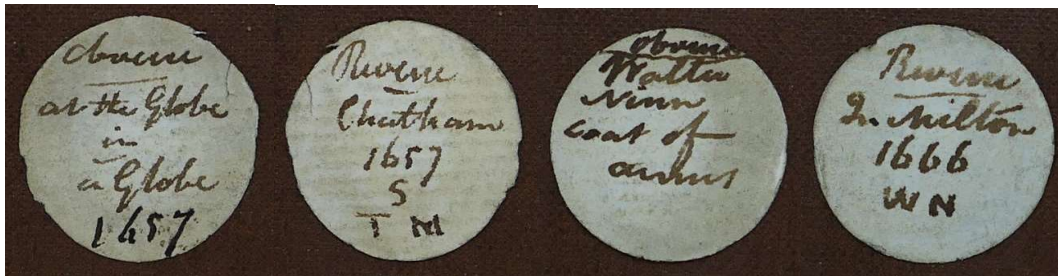 Obverse
at the Globe
in
a Globe
1657
Reverse
Chatham
1657
S
T M
Obverse
Walter
Ninn
coat of
armes
Reverse
In Milton
1666
W N